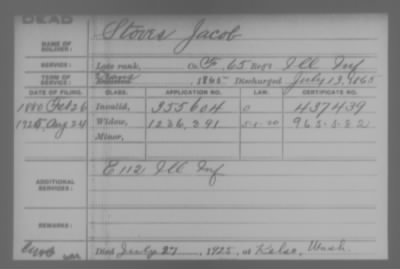 DEAD
NAME OF SOLDIER: Stover Jacob
SERVICE: Late rank, Co. F. 65 Reg't Ill Inf
TERM OF SERVICE: Enlisted 1865 Discharged July 13, 1865
DATE OF FILING. CLASS. APPLICATION NO. LAW. CERTIFICATE NO.
1880 Feb 26 Invalid, 355604 0 437439
1925, Aug 24 Widow, 1236,391 5-1-20 965-5-82
Minor,
ADDITIONAL SERVICES: E 112 Ill Inf
REMARKS:
war Died July 27, 1925, at Kelso, Wash.